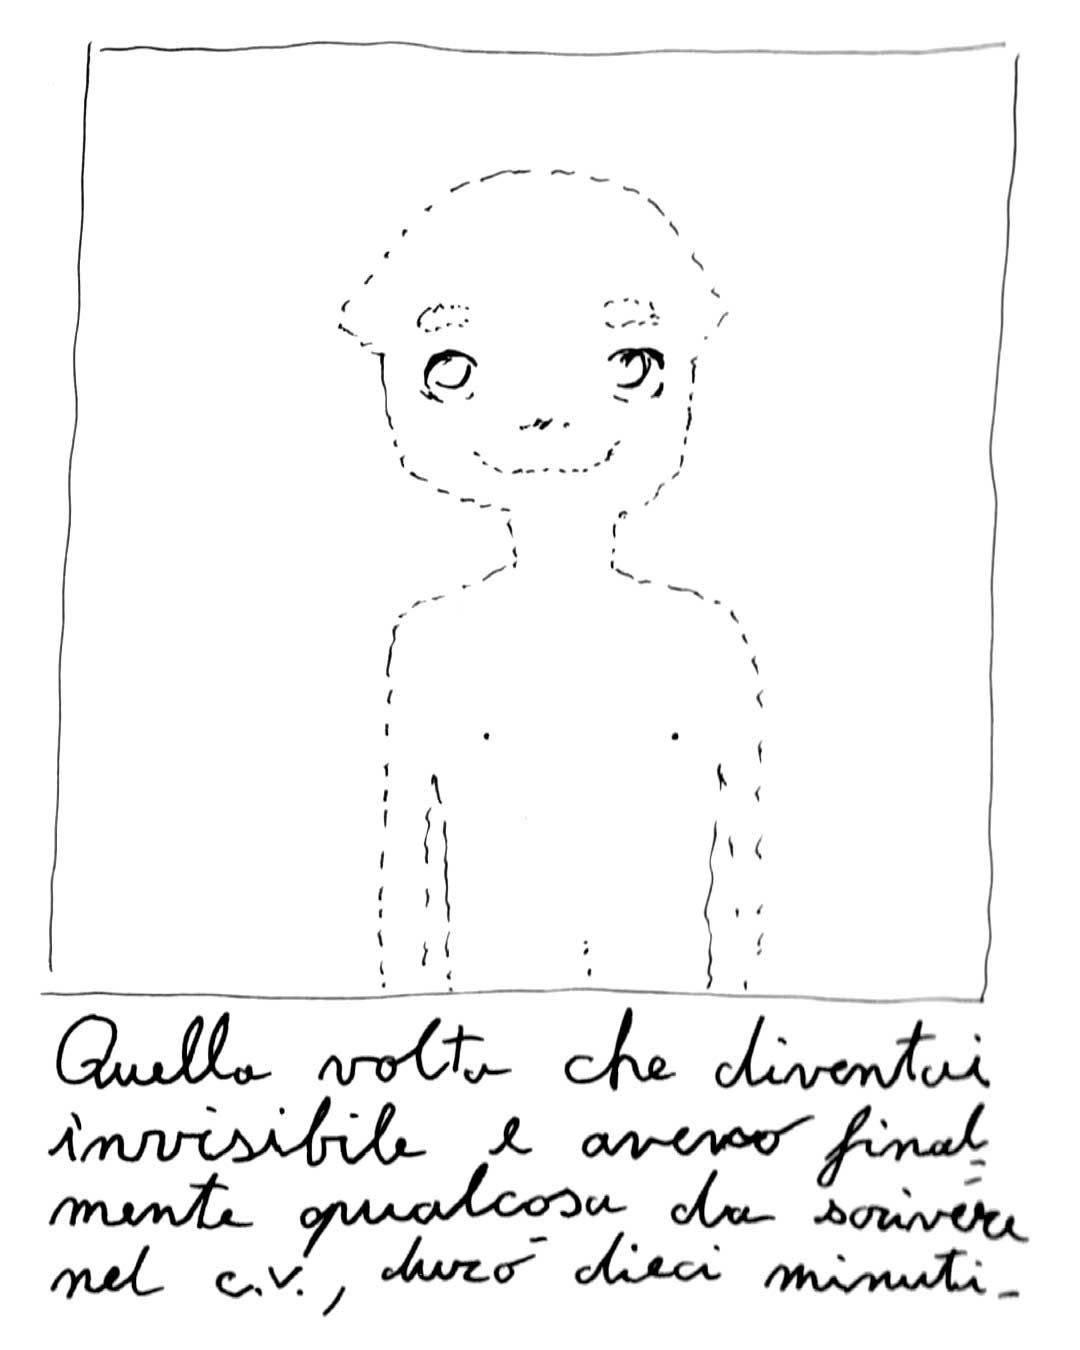 Quella volta che diventai
invisibile e avevo final
mente qualcosa da scrivere
nel c.v., durò dieci minuti-